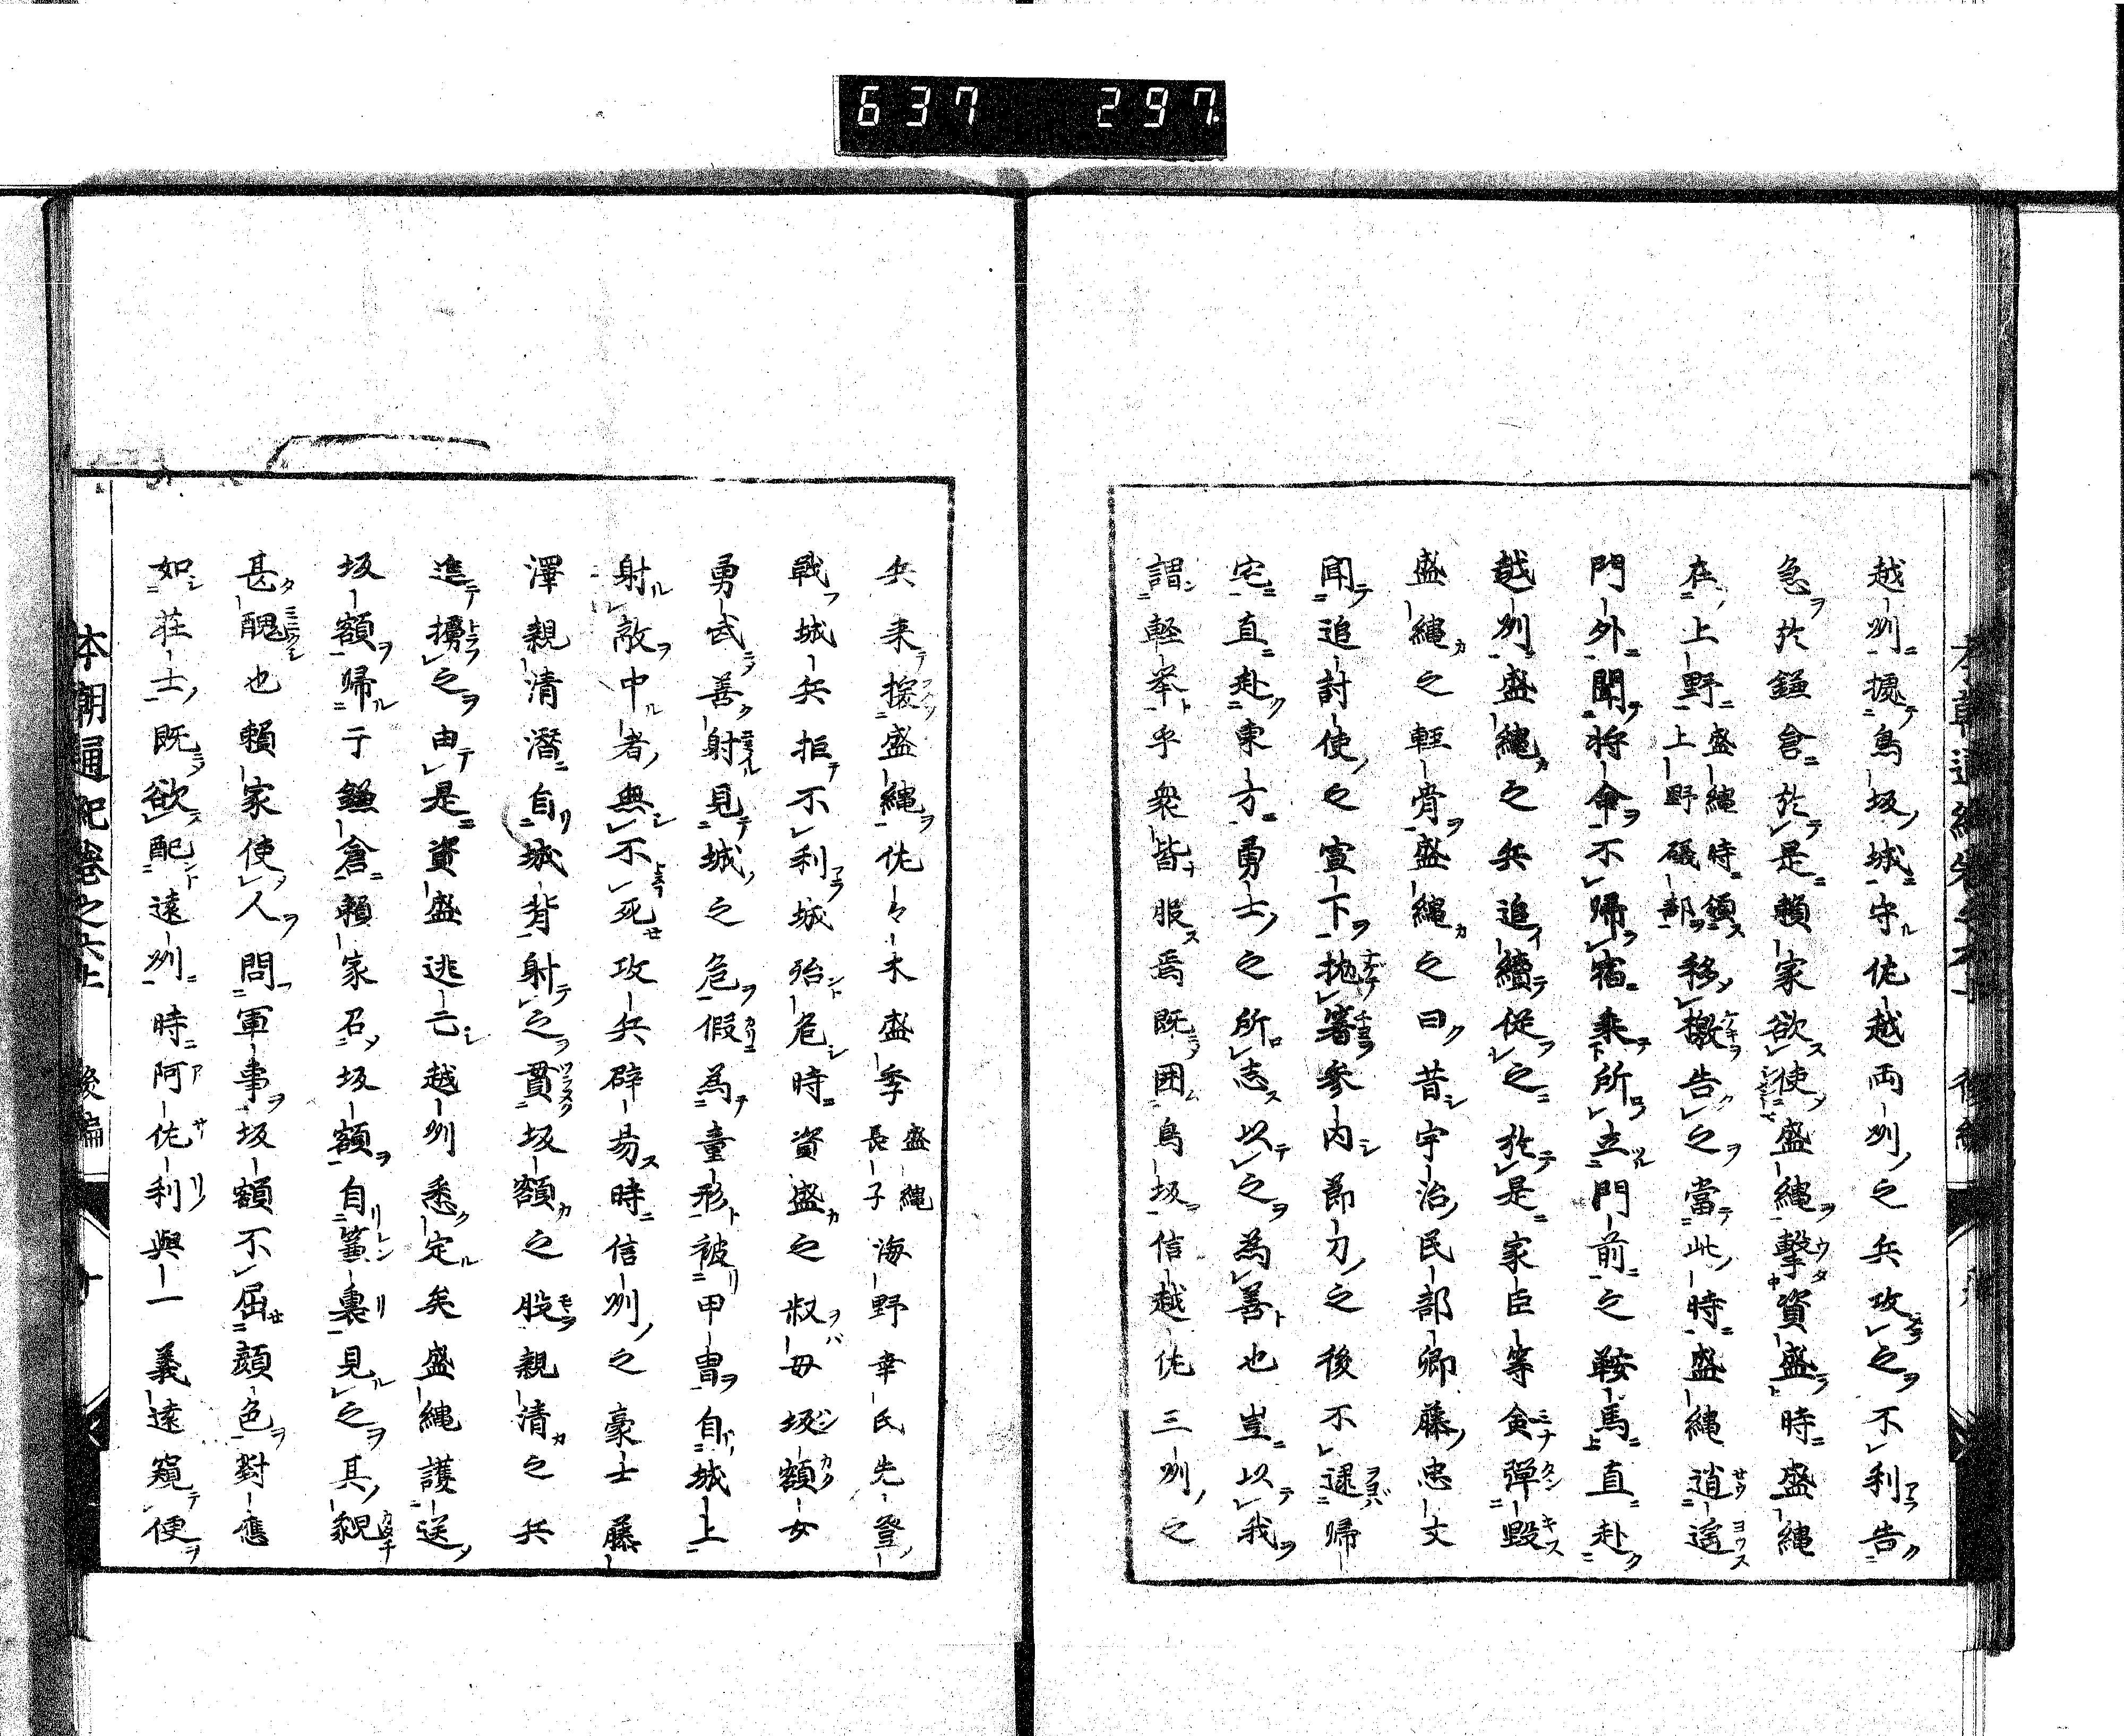 637 297
越州據鳥坂城守佐越両州之兵攻之不利告
急於鎌倉於是頼家欲使盛縄撃資盛時盛縄
在上野盛縄時領上野礒部移檄告之當此時盛縄逍遥
門外聞将命不帰宿来所立門前之鞍馬直赴
越州盛縄之兵追續従之於是家臣等僉弾毀
盛縄之軽骨盛縄之曰昔宇治民部卿藤忠文
聞追討使之宣下抛箸参内節刀之後不逮帰
宅直赴東方勇士之所志以之為善也豈以我
謂軽挙乎衆皆服焉既囲鳥坂信越佐三州之
兵来援盛縄佐々木盛季盛縄長子海野幸氏先登
戦城兵拒不利城殆危時資盛之叔母坂額女
勇武善射見城之危假為童形被甲冑自城上
射敵中者無不死攻兵辟易時信州之豪士藤
澤親清潜自城背射之貫坂額之股親清之兵
進擒之由是資盛逃亡越州悉定矣盛縄護送
坂額帰于鎌倉頼家召坂額自簾裏見之其貌
甚醜也頼家使人問軍事坂額不屈顔色對應
如荘士既欲配遠州時阿佐利與一義遠窺便
本朝通紀巻之六上 後編